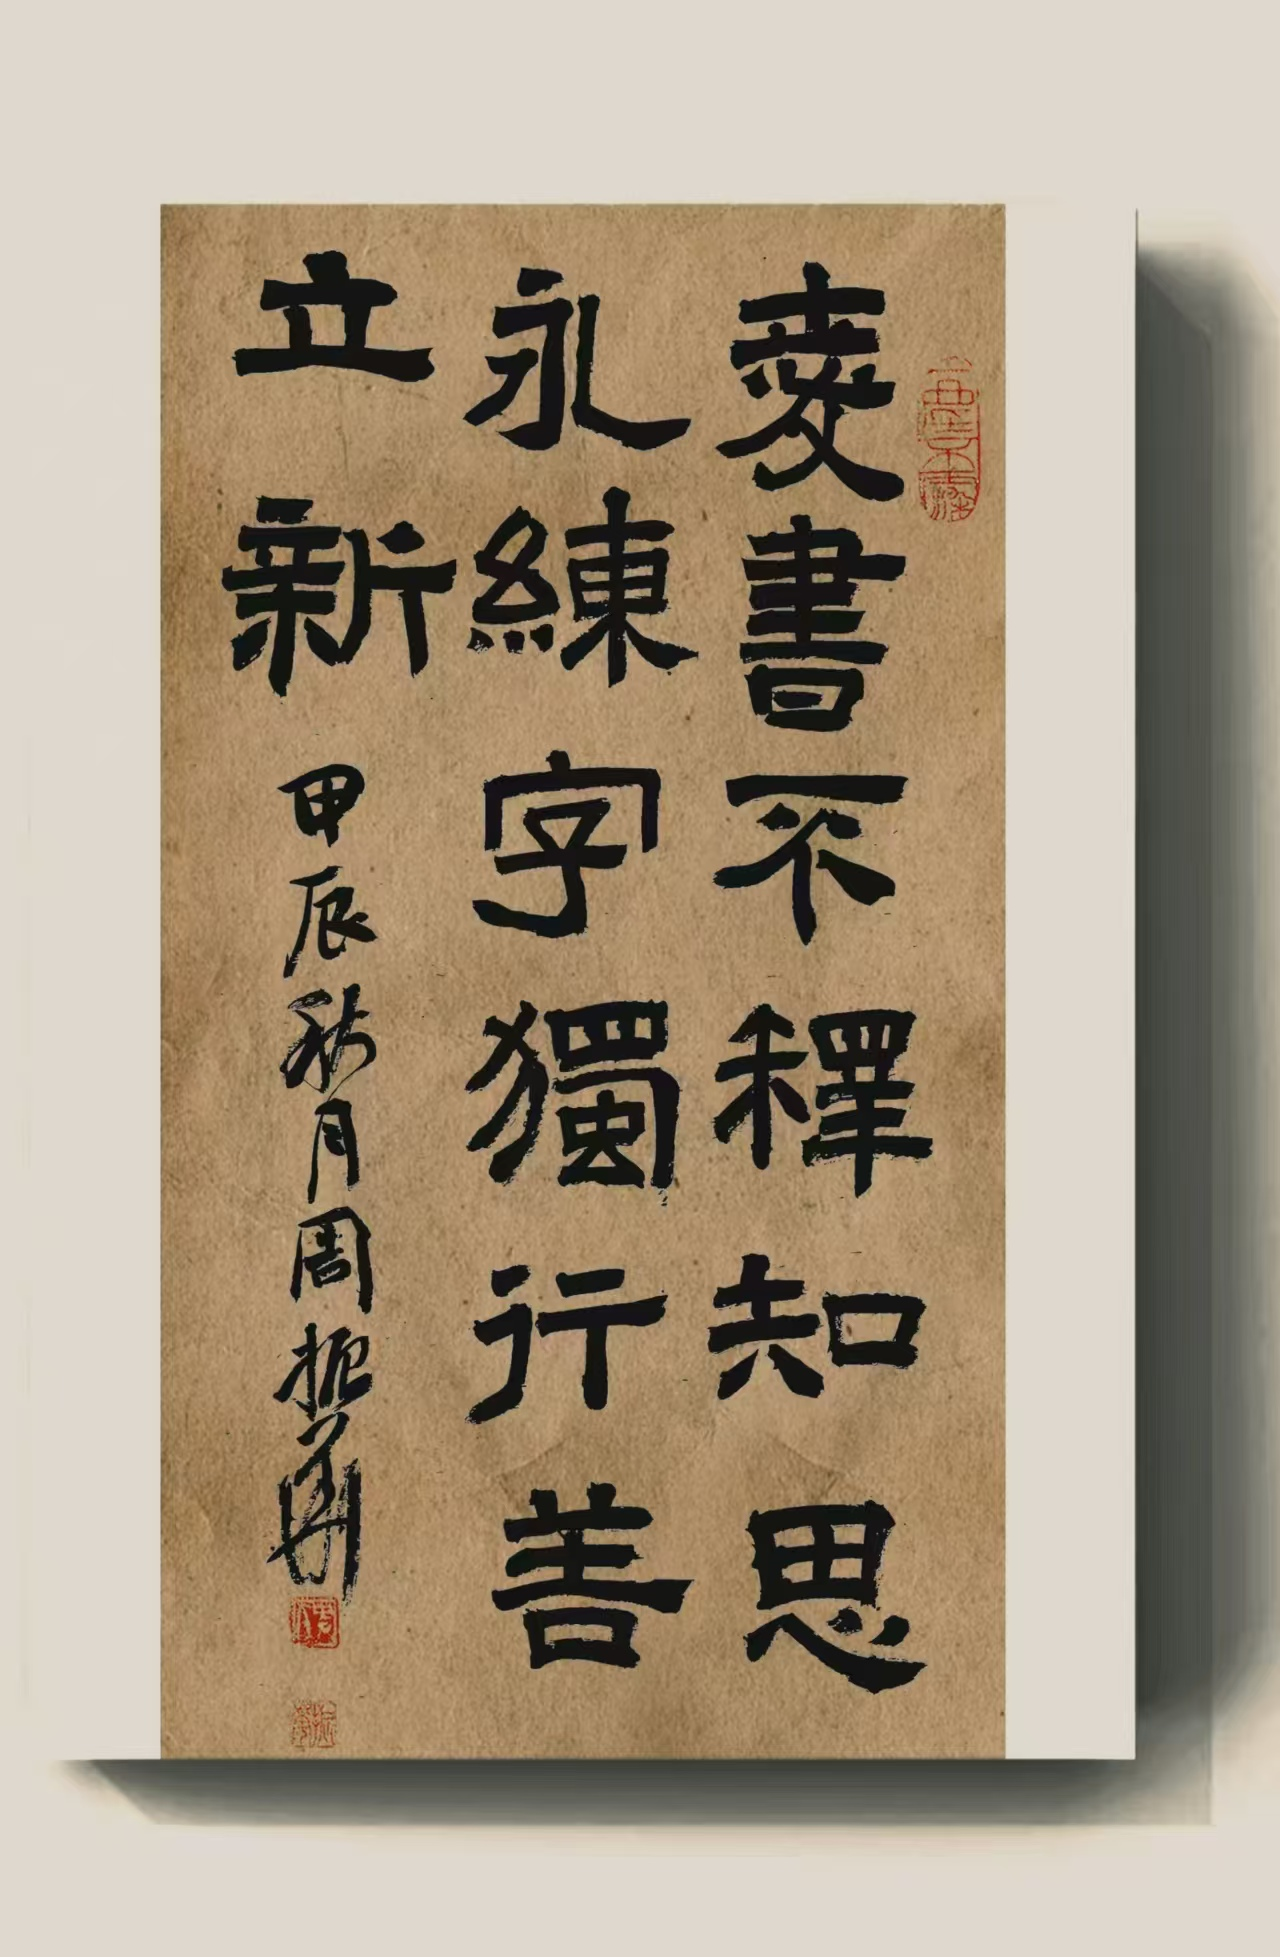 爱書不釋知思
永練字獨行善
立新
甲辰秋月周振華